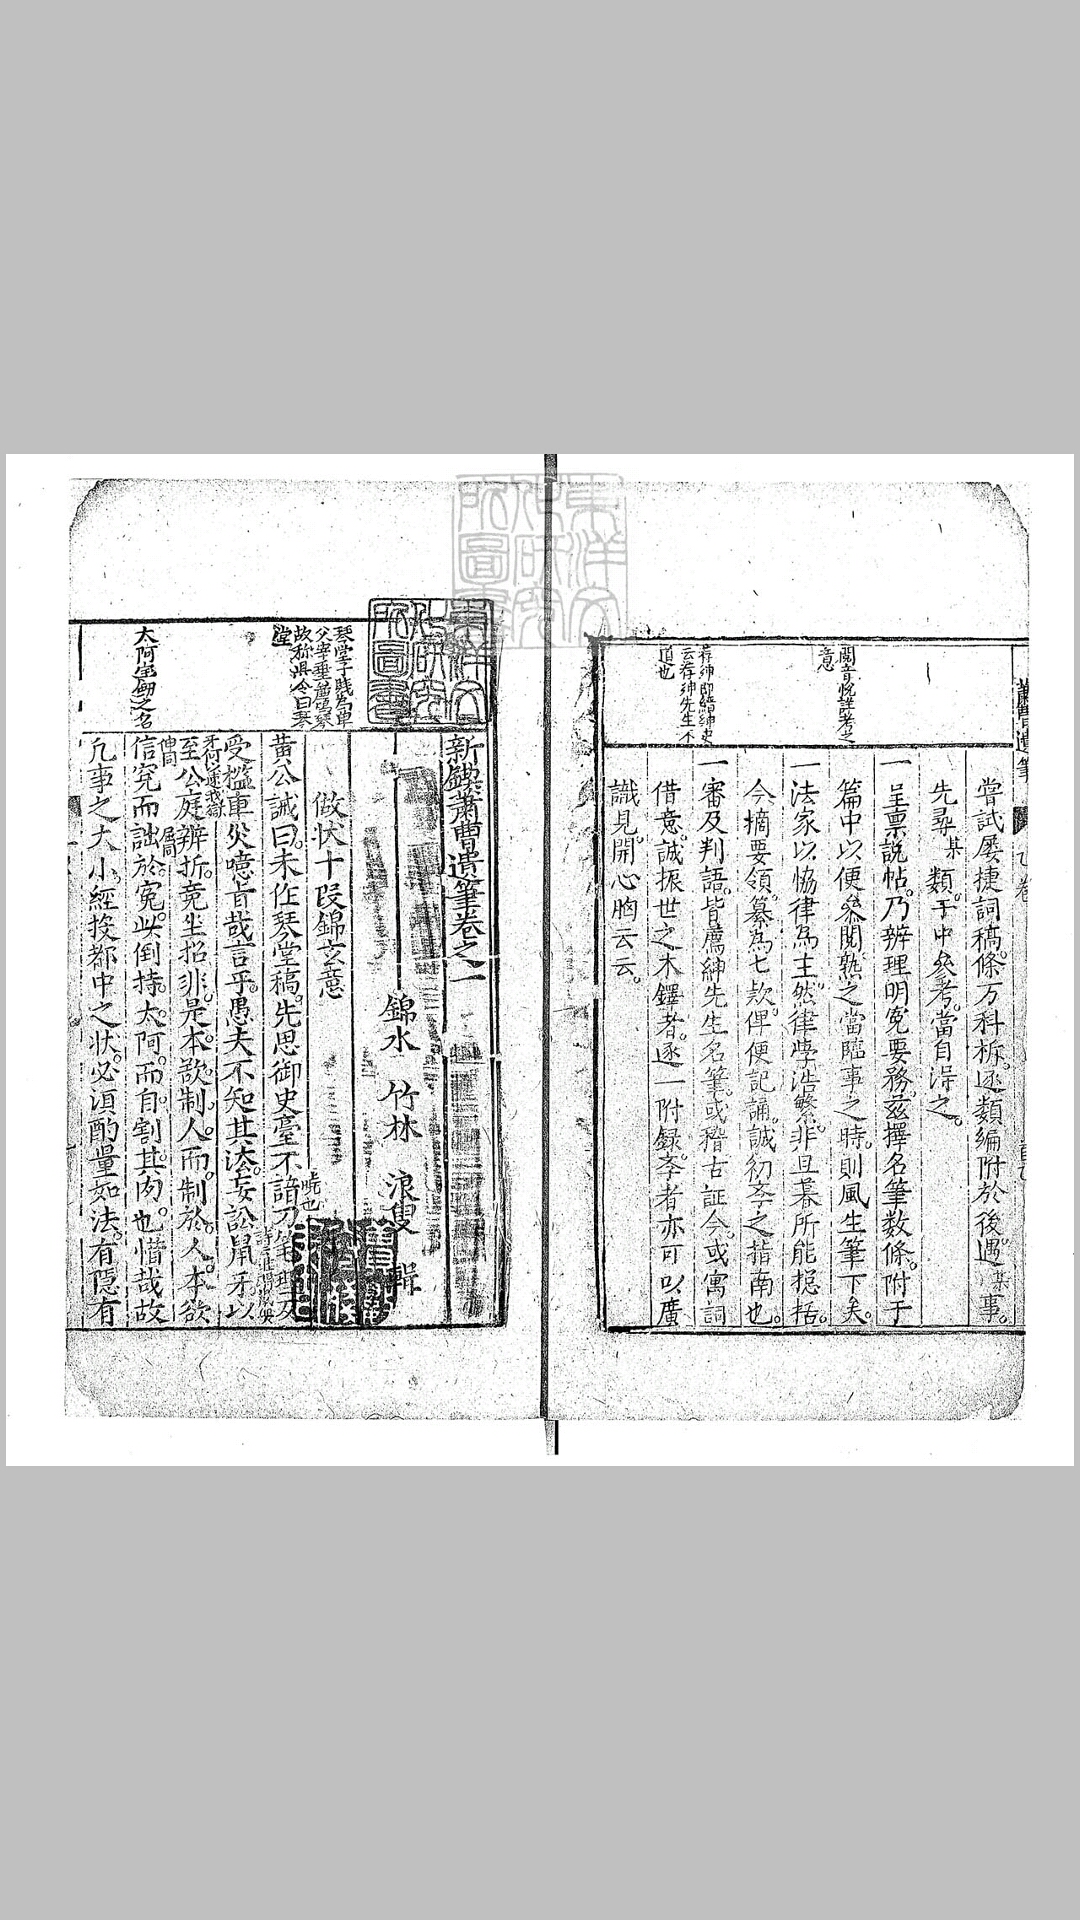 嘗試屡捷詞稿。條万科柝。逐類編附於後。遇某事。
先尋某類。于中參考。當自得之。
一呈禀說帖。乃辨理明冤要務。兹擇名筆数條。附于
篇中以便參閱。熟之當臨事之時。則風生筆下矣。
一法家以恊律為主。然律學浩繁。非旦暮所能揔括。
今摘要領。纂為七欵。俾便記誦。誠初斈之指南也。
一審及判語。皆薦紳先生名筆。或稽古証今。或寓詞
借意。誠振世之木鐸者。逐一附録。斈者亦可以廣
識見。開心胸云云。
閱音悅謹考之
意
荐紳即縉紳史
云荐紳先生不
道也
新鍥蕭曹遺筆卷之一
錦水 竹林 浪叟 輯
做状十段錦玄意
黃公誡曰。未作琴堂稿。先思御史臺。不諳刀筆理。
曉也
受檻車災。噫旨哉言乎。愚夫不知其法。妄訟鼠牙。以
至公庭辨折。竟坐招非。是本欲制人。而制於人。本欲
信冤而詘於冤。此倒持太阿。而自割其肉也。惜哉。故
凢事之大小。經投都中之状。必湏酌量如法。有隱有
琴堂子賤為單
父宰垂簾鳴琴
故称県令曰琴
堂
太阿宝劒之名